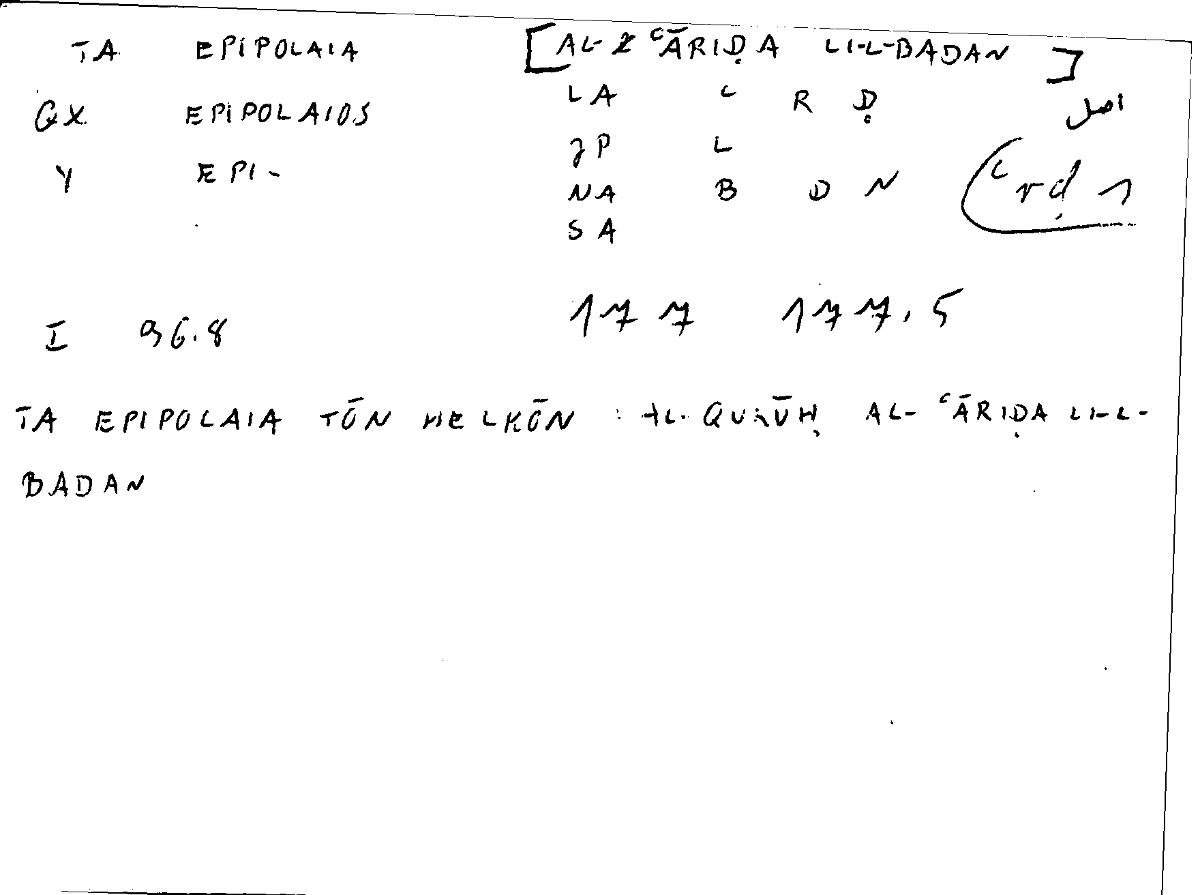 TA EPIPOLAIA [AL-ʿĀRIḌA LI-L-BADAN]
GX EPIPOLAIOS LA ʿ R Ḍ اصل
Y EPI- JP L ʿrḍ 1
NA B D N
SA
I 96.8 177 177,5
TA EPIPOLAIA TŌN HELKŌN : AL-QURŪḤ AL-ʿĀRIḌA LI-L-
BADAN